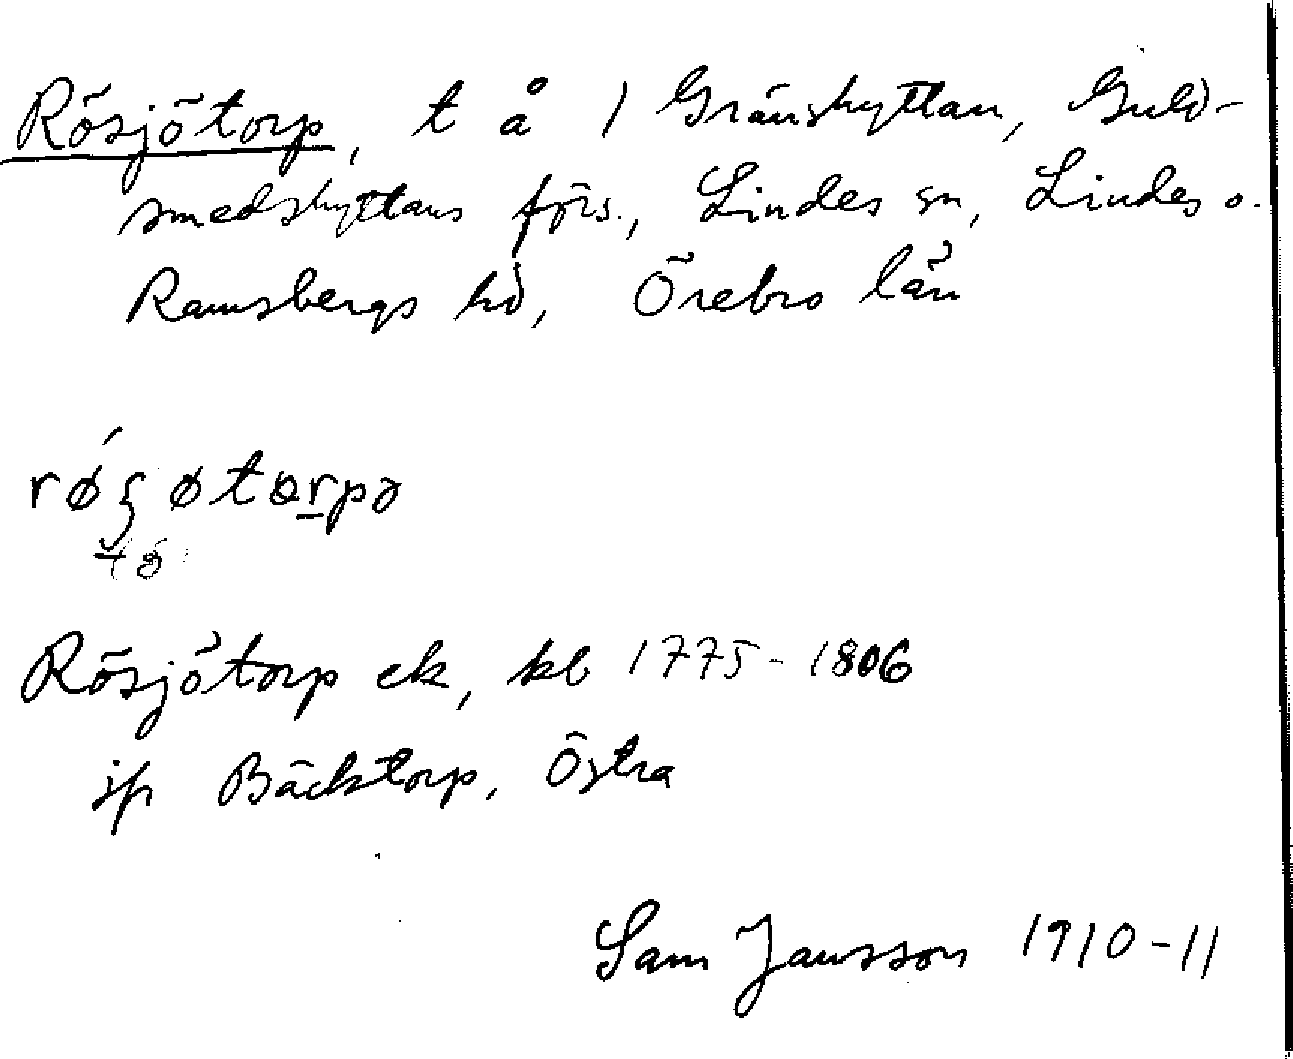 Rösjötorp, t å 1 Gränshyttan, Guld-
smedshyttansförs., Lindes sn, Lindes o.
Ramsbergs hd, Örebro län
røʂøtɵrpə
Rösjötorp ek, kb 1775-1806
jfr Bäcktorp, Östra
Sam Jansson 1910-11